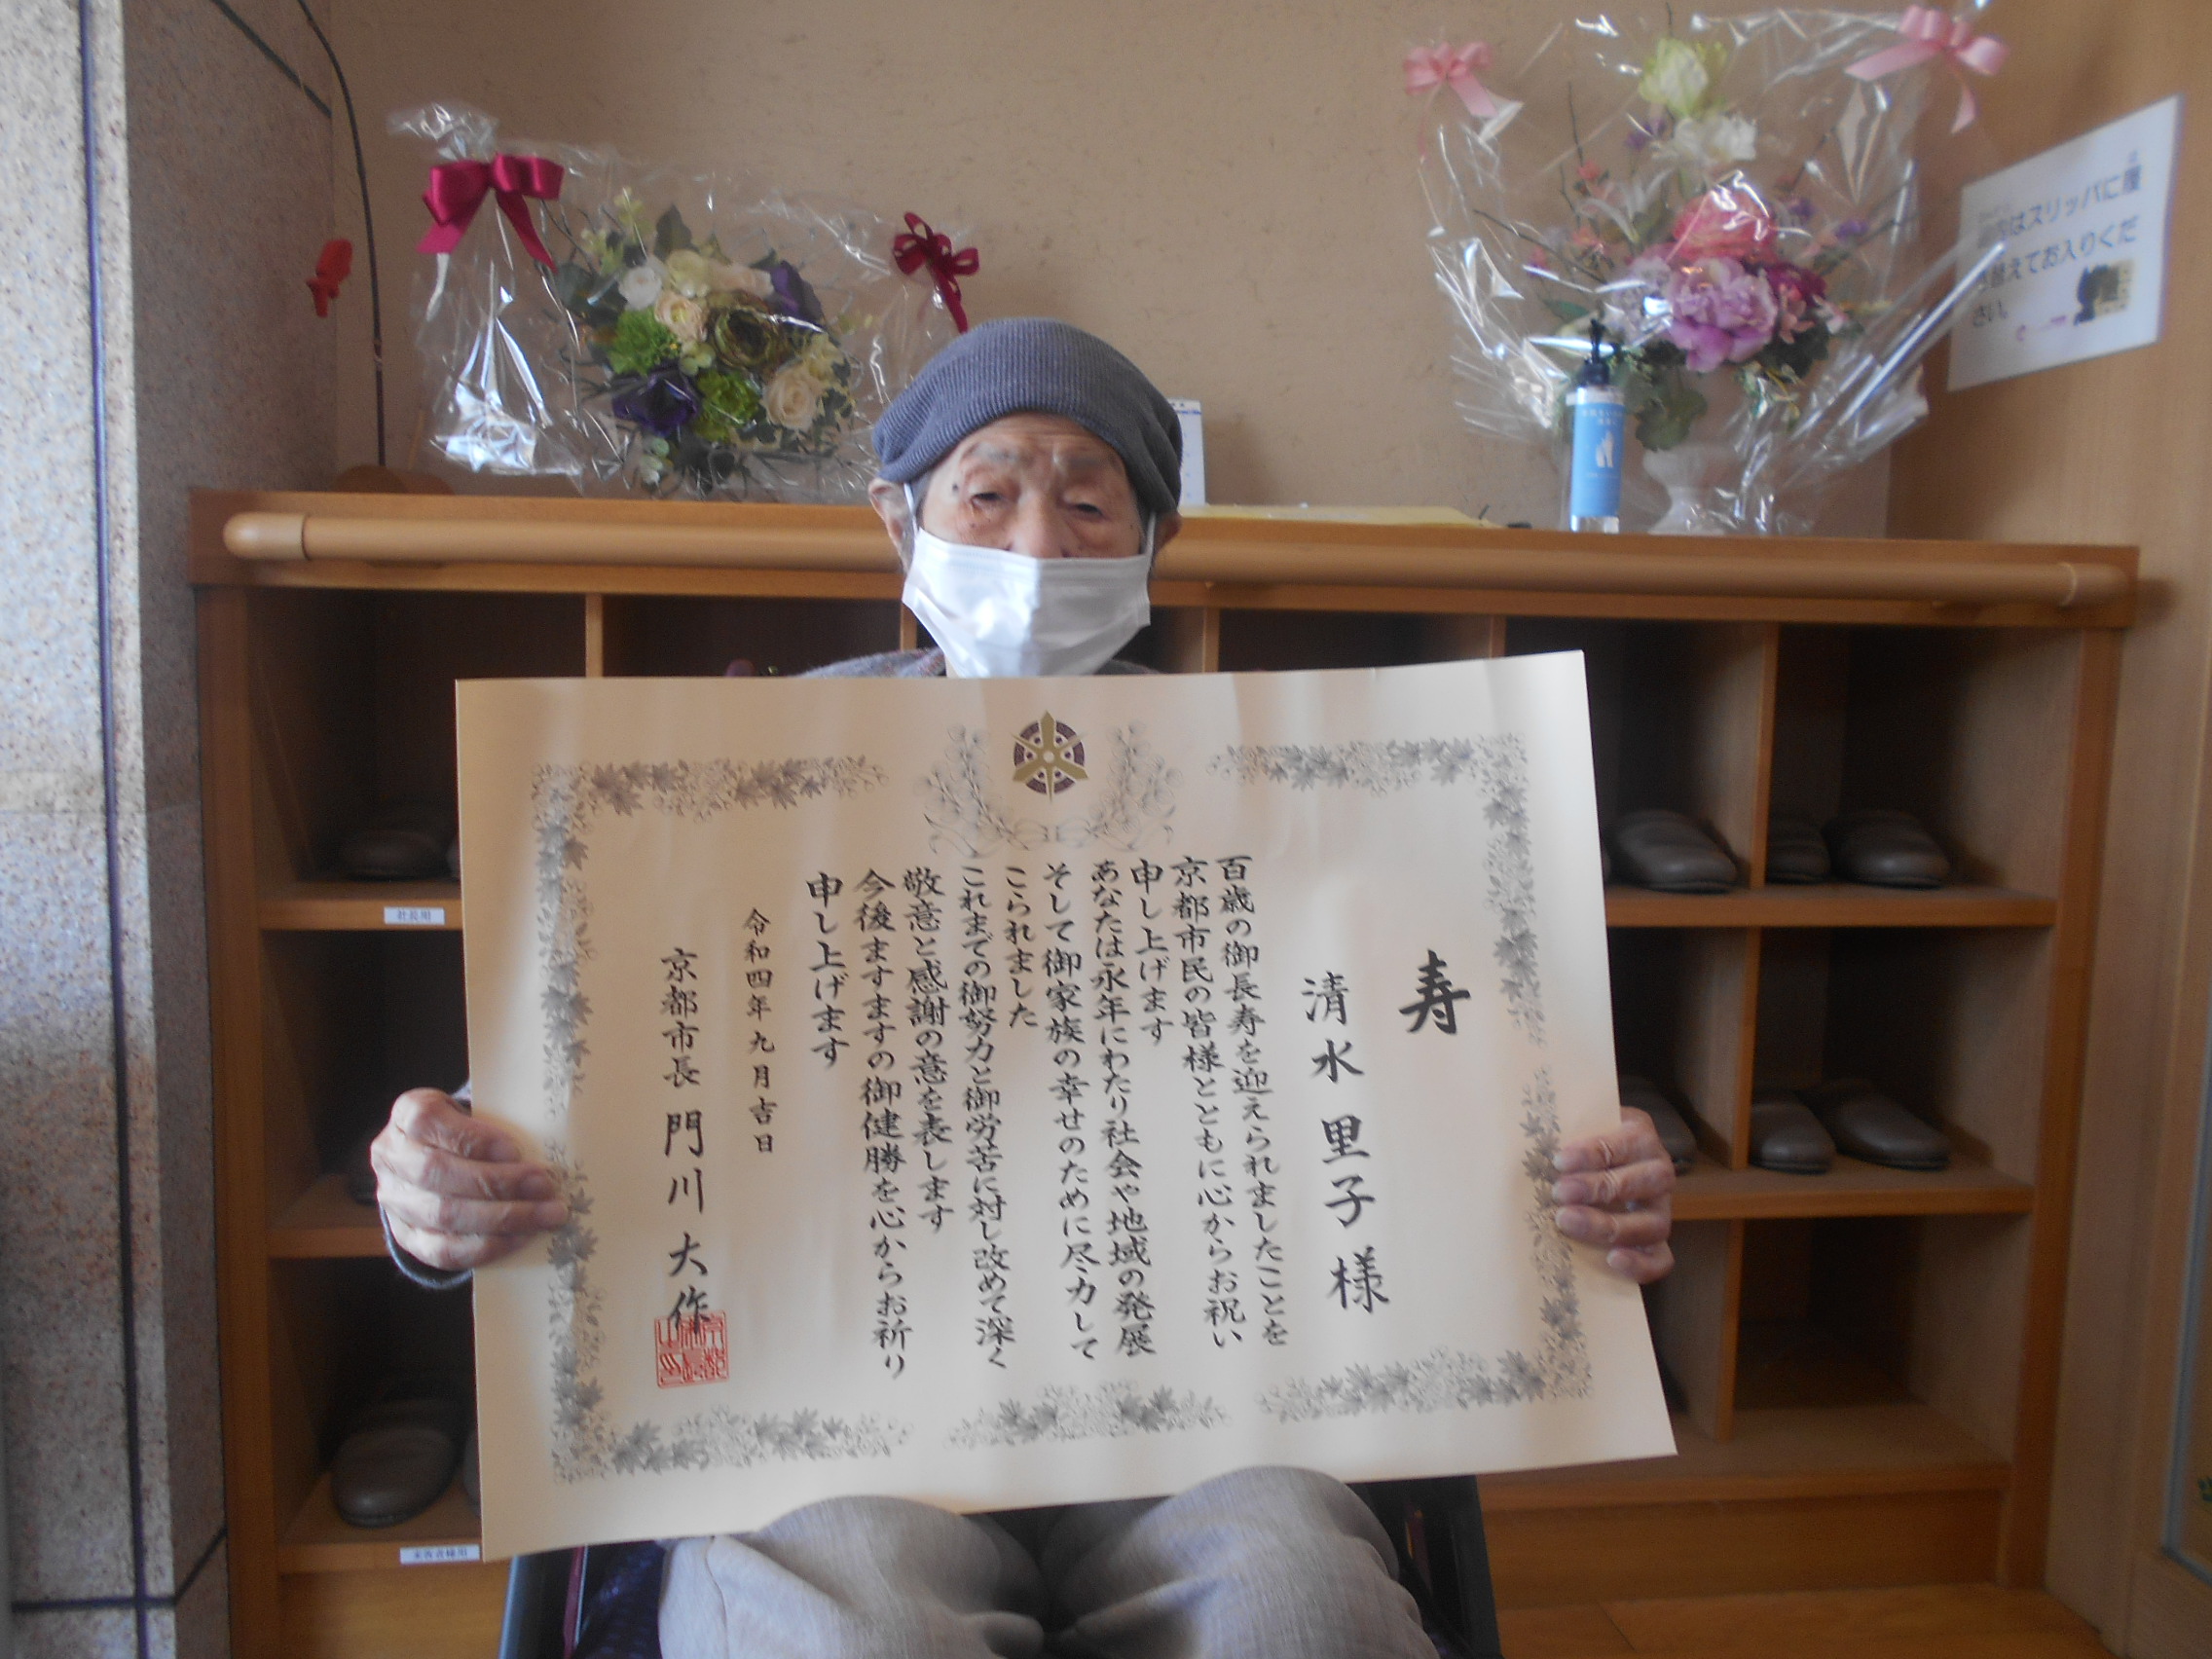 寿
清水里子様
百歳の御長寿を迎えられましたことを
京都市民の皆様とともに心からお祝い
申し上げます
あなたは永年にわたり社会や地域の発展
そして御家族の幸せのために尽力して
こられました
これまでの御努力と御労苦に対し改めて深く
敬意と感謝の意を表します
今後ますますの御健勝を心からお祈り
申し上げます
令和四年九月吉日
京都市長 門川大作
はスリッパに履
えてお入りくだ
さい。
社長用
来客者様用